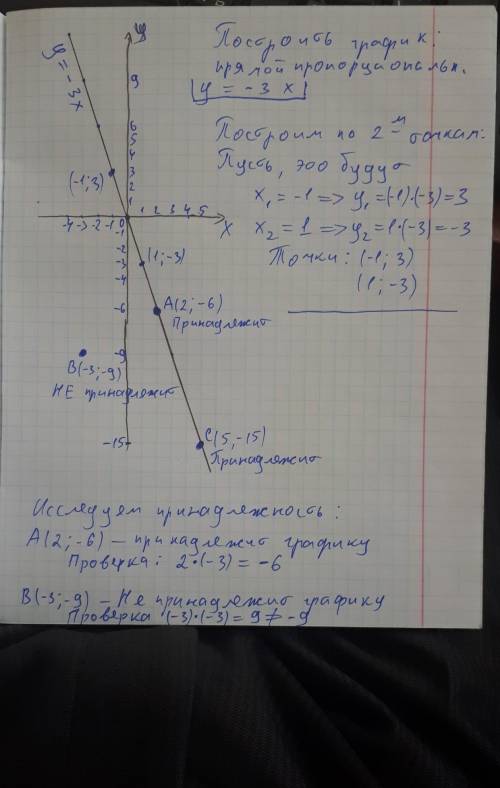 Построить график
прямой пропорциональн.
y = -3x
Построим по 2-м точкам:
Пусть, это будут
x₁ = -1 => y₁ = (-1)·(-3) = 3
x₂ = 1 => y₂ = 1·(-3) = -3
Точки: (-1; 3)
(1; -3)
y
y = -3x
9
6
5
4
3
2
1
(-1; 3)
-4 -3 -2 -1 0 1 2 3 4 5
x
-1
-2
-3
-4
(1; -3)
-6
A(2; -6)
Принадлежит
-9
B(-3; -9)
НЕ принадлежит
-15
C(5, -15)
Принадлежит
Исследуем принадлежность:
A(2; -6) – принадлежит графику
Проверка: 2·(-3) = -6
B(-3; -9) – Не принадлежит графику
Проверка (-3)·(-3) = 9 ≠ -9